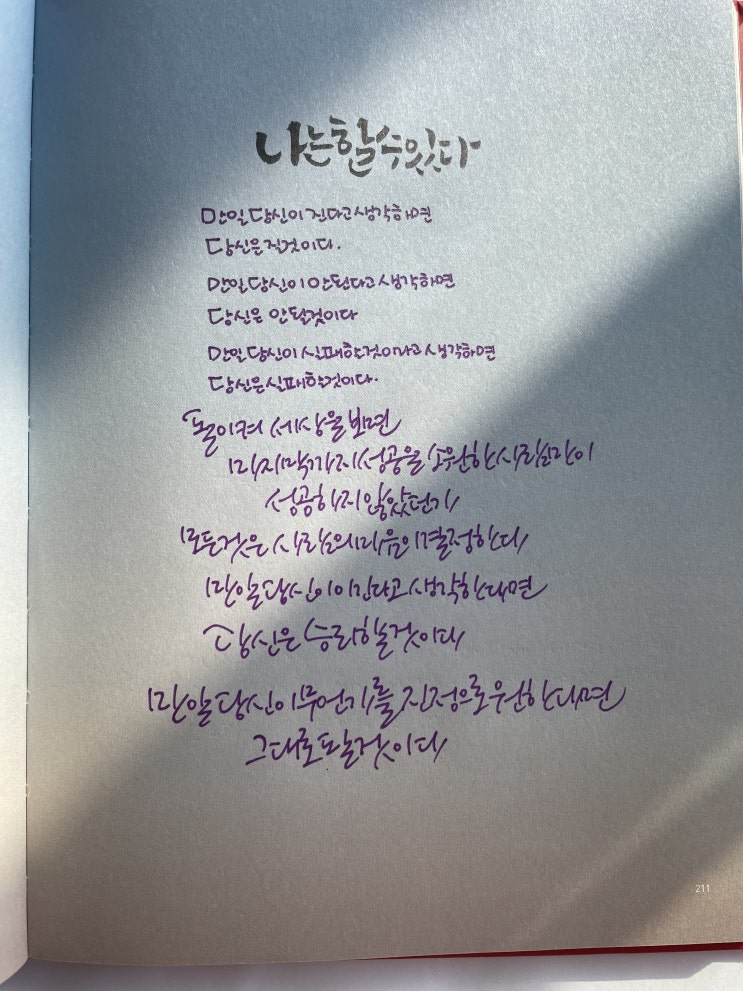 나는 할 수 있다
만일 당신이 진다고 생각하면
당신은 질것이다.
만일 당신이 안된다고 생각하면
당신은 안될것이다
만일 당신이 실패할것이라고 생각하면
당신은 실패할것이다.
돌이켜 세상을 보면
마지막까지 성공을 소원한 사람만이
성공하지 않았던가
모든것은 사람의 마음이 결정한다
만일 당신이 이긴다고 생각한다면
당신은 승리할것이다
만일 당신이 무언가를 진정으로 원한다면
그대로 될것이다
211